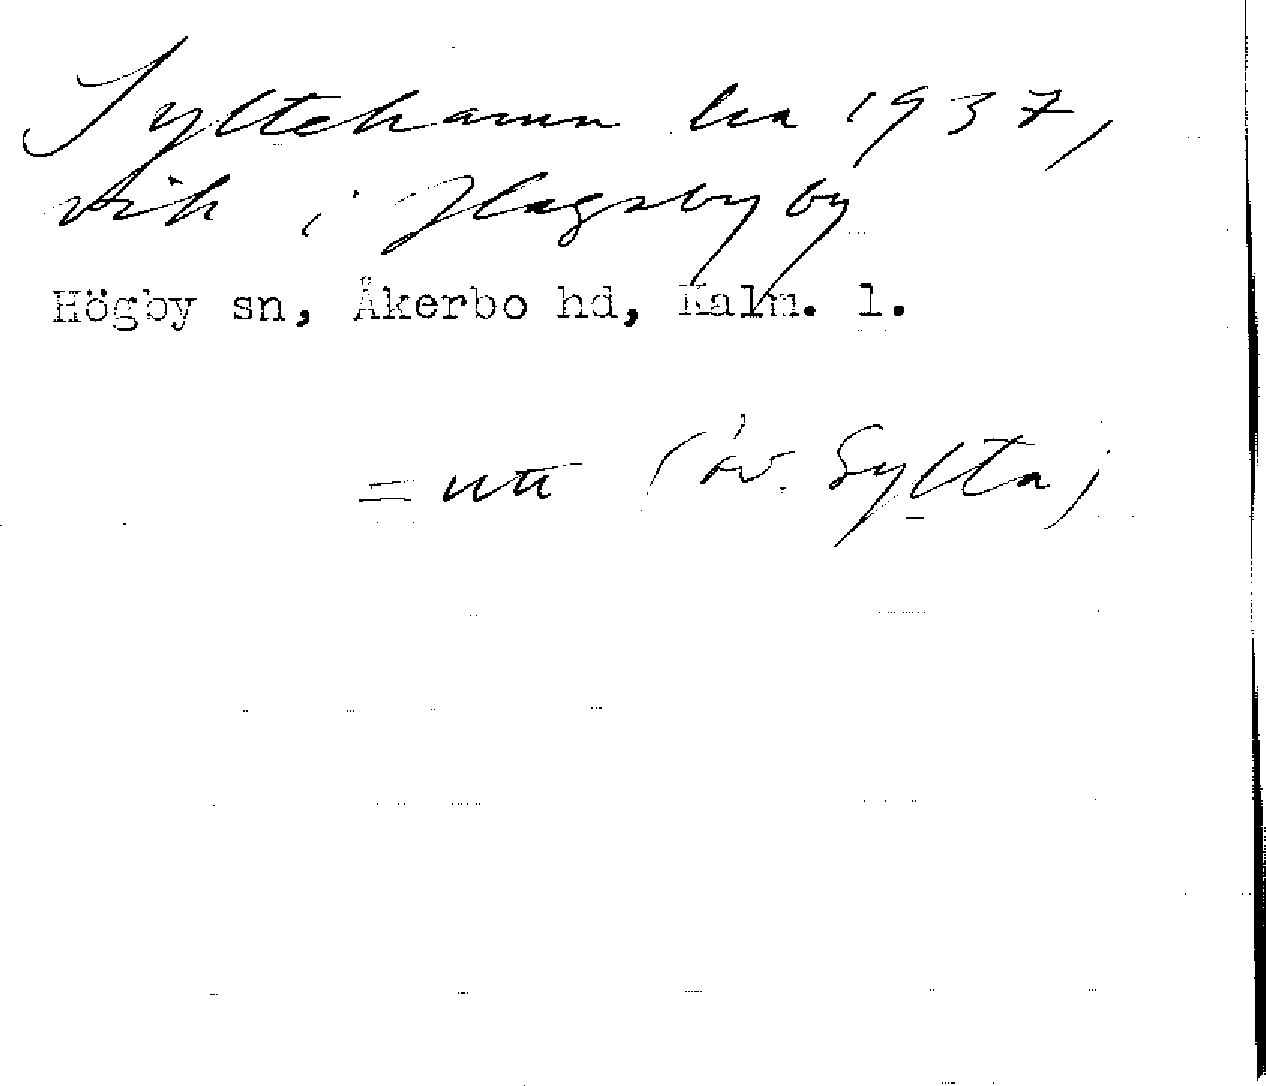 Syltehamn ka 1937,
vik i Hagsby by
Högby sn, Åkerbo hd, Kalm. l.
= utt (öv. Sylta)